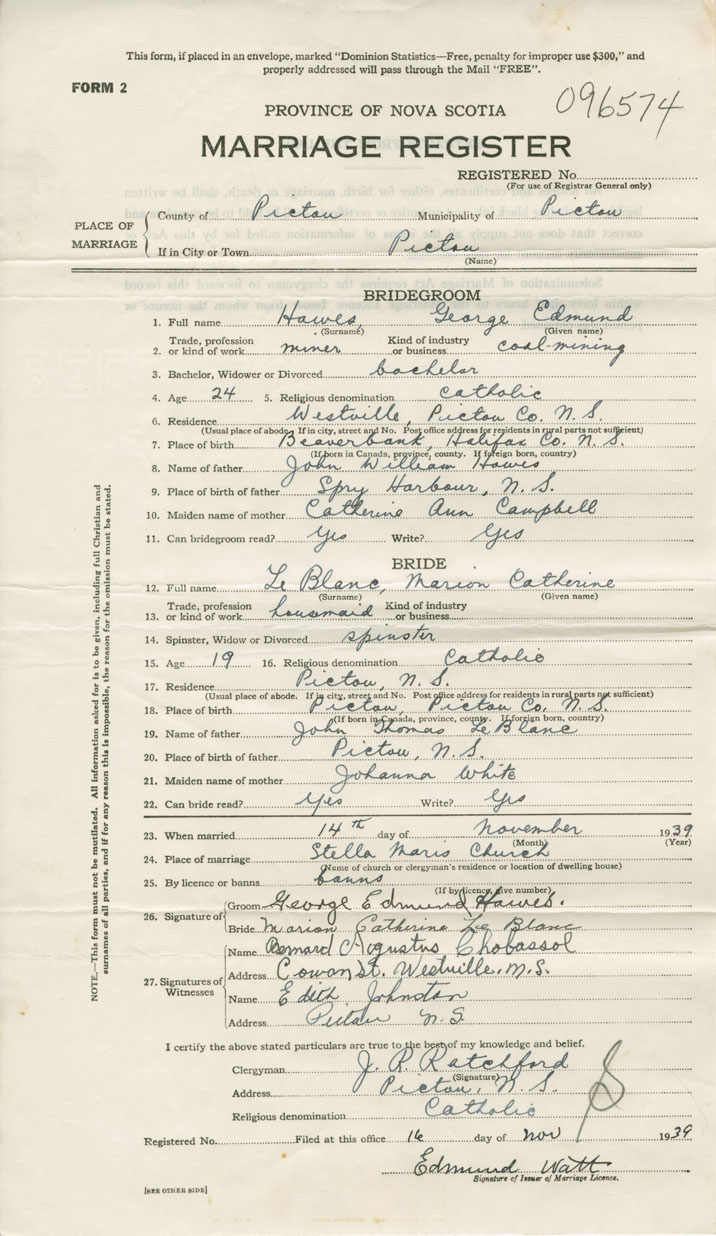 This form, if placed in an envelope, marked "Dominion Statistics—Free, penalty for improper use $300," and
properly addressed will pass through the Mail "FREE".
FORM 2
096574
PROVINCE OF NOVA SCOTIA
MARRIAGE REGISTER
REGISTERED No.
(For use of Registrar General only)
PLACE OF MARRIAGE
County of Pictou Municipality of Pictou
If in City or Town Pictou
(Name)
BRIDEGROOM
1. Full name Hawes, George Edmund
(Surname) (Given name)
2. Trade, profession or kind of work miner Kind of industry or business coal-mining
3. Bachelor, Widower or Divorced bachelor
4. Age 24 5. Religious denomination Catholic
6. Residence Westville, Pictou Co. N. S.
(Usual place of abode. If in city, street and No. Post office address for residents in rural parts not sufficient)
7. Place of birth Beaverbank, Halifax Co. N. S.
(If born in Canada, province, county. If foreign born, country)
8. Name of father John William Hawes
9. Place of birth of father Spry Harbour, N. S.
10. Maiden name of mother Catherine Ann Campbell
11. Can bridegroom read? Yes Write? Yes
BRIDE
12. Full name Le Blanc, Marion Catherine
(Surname) (Given name)
13. Trade, profession or kind of work housemaid Kind of industry or business
14. Spinster, Widow or Divorced spinster
15. Age 19 16. Religious denomination Catholic
17. Residence Pictou, N. S.
(Usual place of abode. If in city, street and No. Post office address for residents in rural parts not sufficient)
18. Place of birth Pictou, Pictou Co. N. S.
(If born in Canada, province, county. If foreign born, country)
19. Name of father John Thomas Le Blanc
20. Place of birth of father Pictou, N. S.
21. Maiden name of mother Johanna White
22. Can bride read? Yes Write? Yes
23. When married 14th day of November 1939
(Month) (Year)
24. Place of marriage Stella Maris Church
(Name of church or clergyman's residence or location of dwelling house)
25. By licence or banns banns
(If by licence, give number)
26. Signature of
Groom George Edmund Hawes.
Bride Marion Catherine Le Blanc
27. Signatures of Witnesses
Name Bernard Augustus Chobassol
Address Cowan St. Westville, N.S.
Name Edith Johnston
Address Pictou N. S.
I certify the above stated particulars are true to the best of my knowledge and belief.
Clergyman J. R. Ratchford
(Signature)
Address Pictou, N. S.
Religious denomination Catholic
Registered No. Filed at this office 16 day of Nov 1939
Edmund Watt
Signature of Issuer of Marriage Licence.
[SEE OTHER SIDE]
NOTE.—This form must not be mutilated. All Information asked for is to be given, including full Christian and
surnames of all parties, and if for any reason this is impossible, the reason for the omission must be stated.